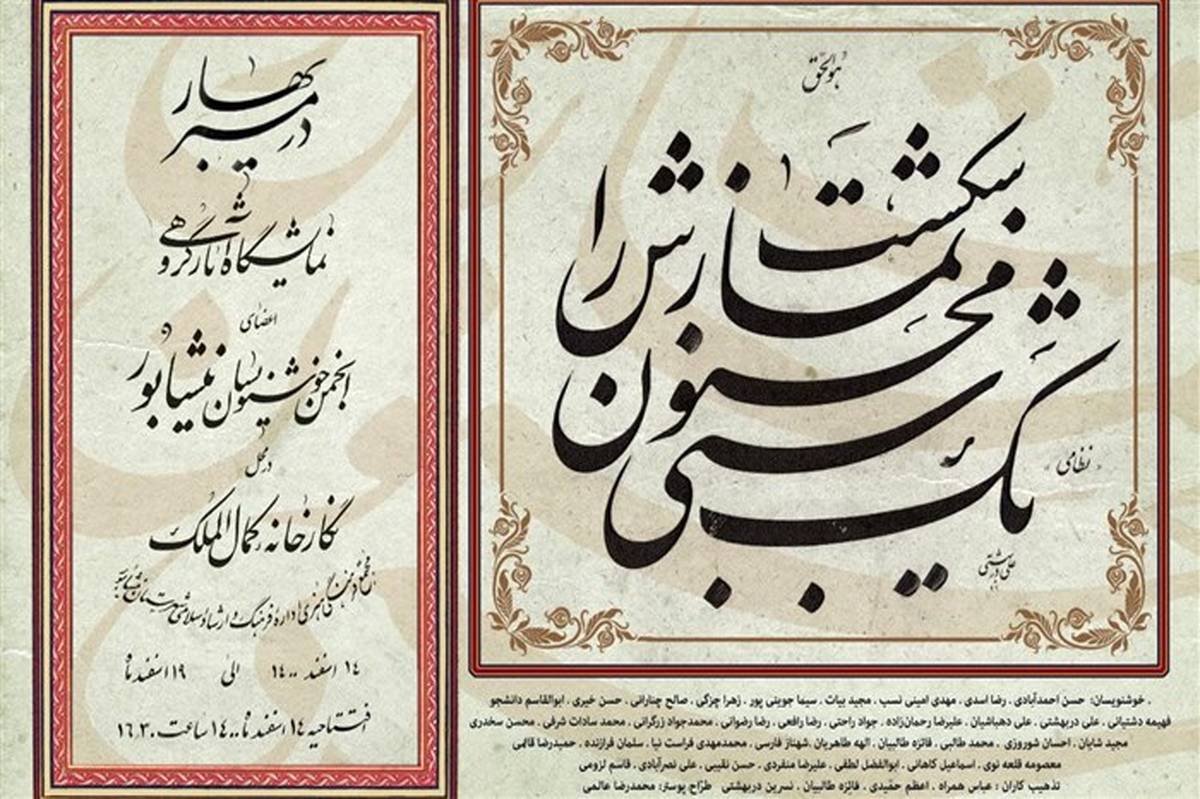 هوالحق
یک شبی مجنون نمازش را شکست
نظامی
علی دربهشتی
. خوشنویسان: حسن احمدآبادی . رضا اسدی . مهدی امینی نسب . مجید بیات . سیما جوینی پور . زهرا چزگی . صالح چنارانی . حسن خیری . ابوالقاسم دانشجو
فهیمه دشتیانی . علی دربهشتی . علی دهباشیان . علیرضا رحمان‌زاده . جواد راحتی . رضا رافعی . رضا رضوانی . محمدجواد زرگرانی . محمد سادات شرفی . محسن سخدری
مجید شایان . احسان شوروزی . محمد طالبی . فائزه طالبیان . الهه طاهریان . شهناز فارسی . محمدمهدی فراست نیا . سلمان فرازنده . حمیدرضا قالمی
معصومه قلعه نوی . اسماعیل کاهانی . ابوالفضل لطفی . علیرضا منفردی . حسن نقیبی . علی نصرآبادی . قاسم لزومی
تذهیب کاران : عباس همراه . اعظم حمیدی . فائزه طالبیان . نسرین دربهشتی طرّاح پوستر: محمدرضا عالمی
در مسیر بهار
نمایشگاه آثار گروهی
اعضای
انجمن خوشنویسان نیشابور
در محل
نگارخانه کمال الملک
مجتمع فرهنگی هنری اداره فرهنگ و ارشاد اسلامی شهرستان نیشابور
۱۴ اسفند ۱۴۰۰ الی ۱۹ اسفند ماه
افتتاحیه ۱۴ اسفند ماه ۱۴۰۰ ساعت ۱۶.۳۰